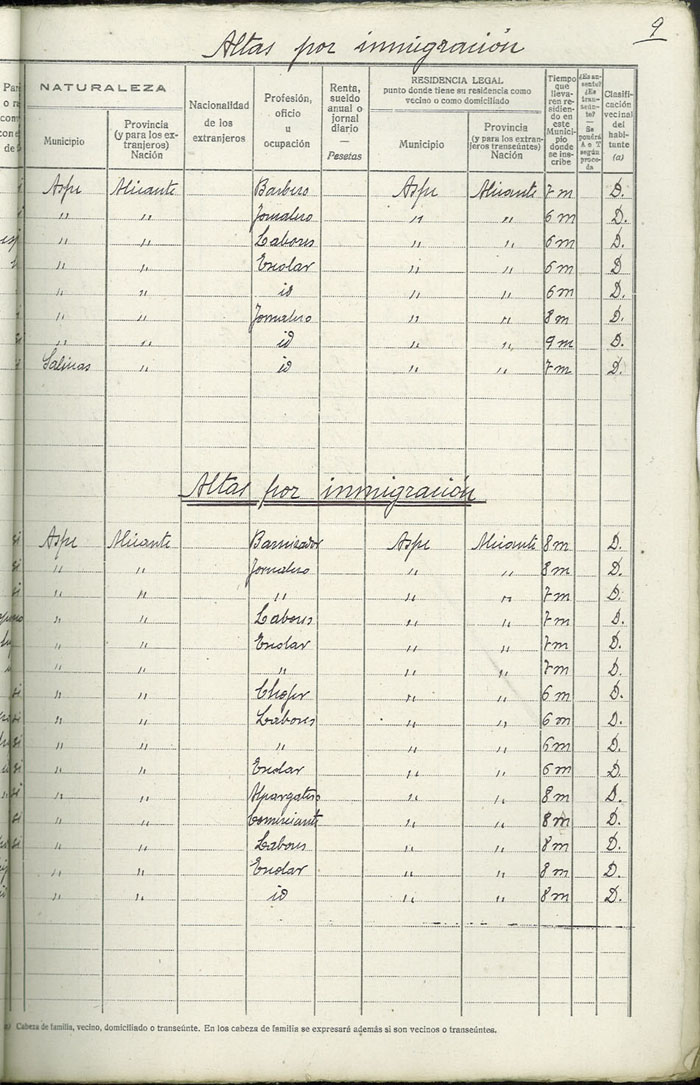 9
Altas por inmigración
NATURALEZA
Municipio
Provincia (y para los extranjeros) Nación
Nacionalidad de los extranjeros
Profesión, oficio u ocupación
Renta, sueldo anual o jornal diario — Pesetas
RESIDENCIA LEGAL
punto donde tiene su residencia como vecino o como domiciliado
Municipio
Provincia (y para los extranjeros transeúntes) Nación
Tiempo que llevaren residiendo en este Municipio donde se inscribe
Clasificación vecinal del habitante (a)
Aspe Alicante Barbero Aspe Alicante 7 m D.
" " Jornalero " " 6 m D.
" " Labores " " 6 m D.
" " Escolar " " 6 m D
" " id " " 6 m D.
" " Jornalero " " 8 m D.
" " id " " 9 m D.
Salinas " id " " 7 m D.
Altas por inmigración
si Aspe Alicante Barnizador Aspe Alicante 8 m D.
si " " Jornalero " " 8 m D.
si " " " " " 7 m D.
" " Labores " " 7 m D.
" " Escolar " " 7 m D.
" " " " " 7 m D.
si " " Chofer " " 6 m D.
si " " Labores " " 6 m D.
si " " " " " 6 m D.
si " " Escolar " " 6 m D.
si " " Alpargatero " " 8 m D.
si " " Comerciante " " 8 m D.
si " " Labores " " 8 m D.
" " Escolar " " 8 m D.
" " id " " 8 m D.
Cabeza de familia, vecino, domiciliado o transeúnte. En los cabeza de familia se expresará además si son vecinos o transeúntes.